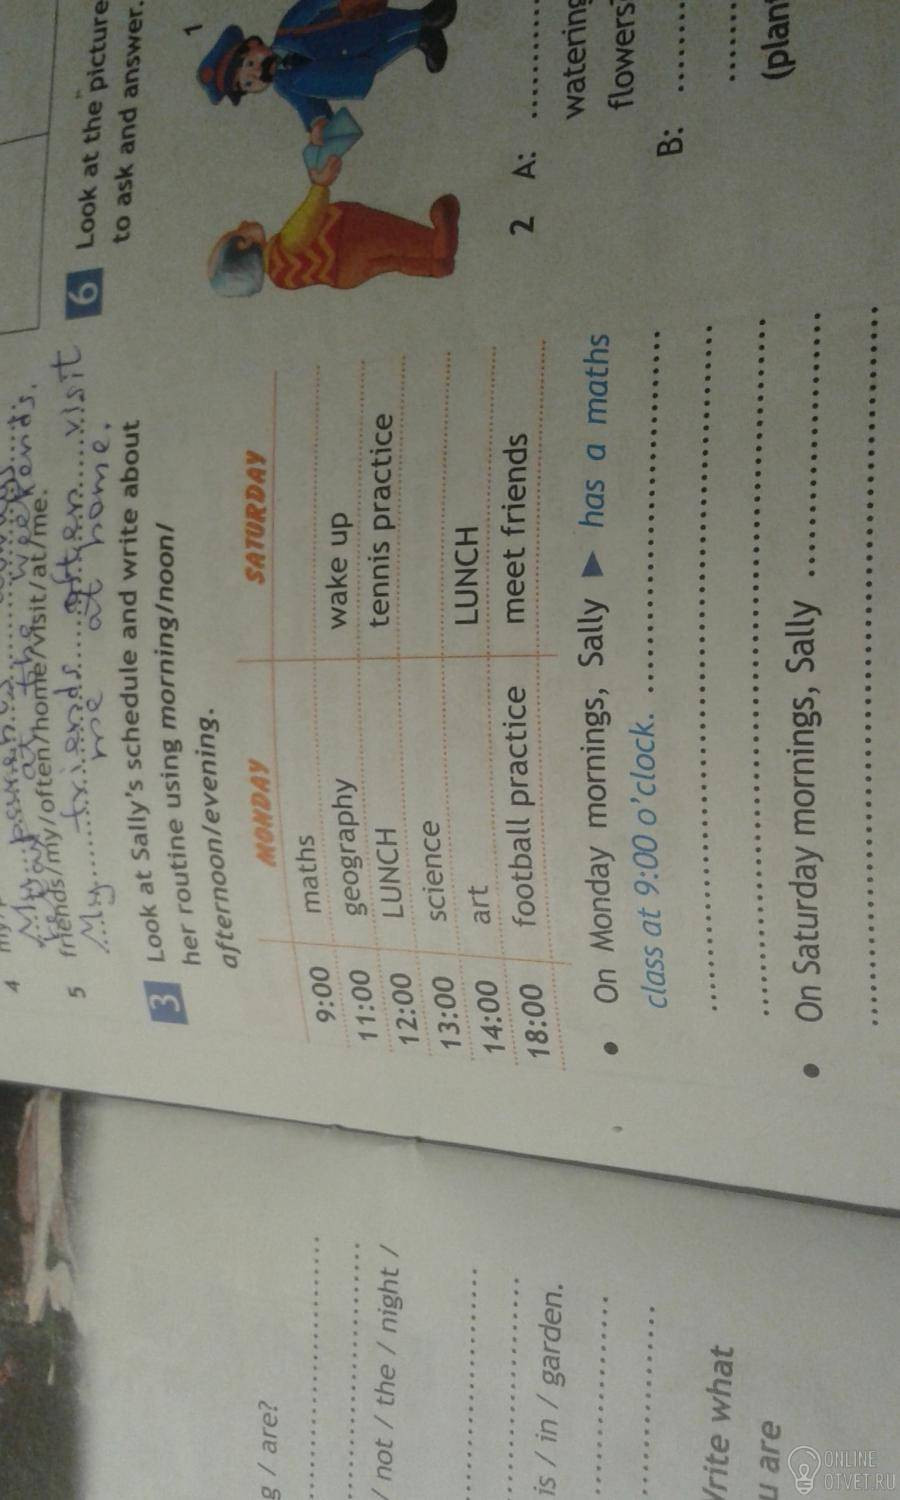 4
friends/my/often/home/visit/at/me.
5 My friends often visit
me at home.
3 Look at Sally's schedule and write about
her routine using morning/noon/
afternoon/evening.
MONDAY SATURDAY
9:00 maths
11:00 geography wake up
12:00 LUNCH tennis practice
13:00 science
14:00 art LUNCH
18:00 football practice meet friends
• On Monday mornings, Sally ► has a maths
class at 9:00 o'clock.
• On Saturday mornings, Sally
6 Look at the picture
to ask and answer.
1
2 A:
watering
flowers
B:
(plant
g / are?
/ not / the / night /
is / in / garden.
Write what
u are
ONLINE
OTVET.RU